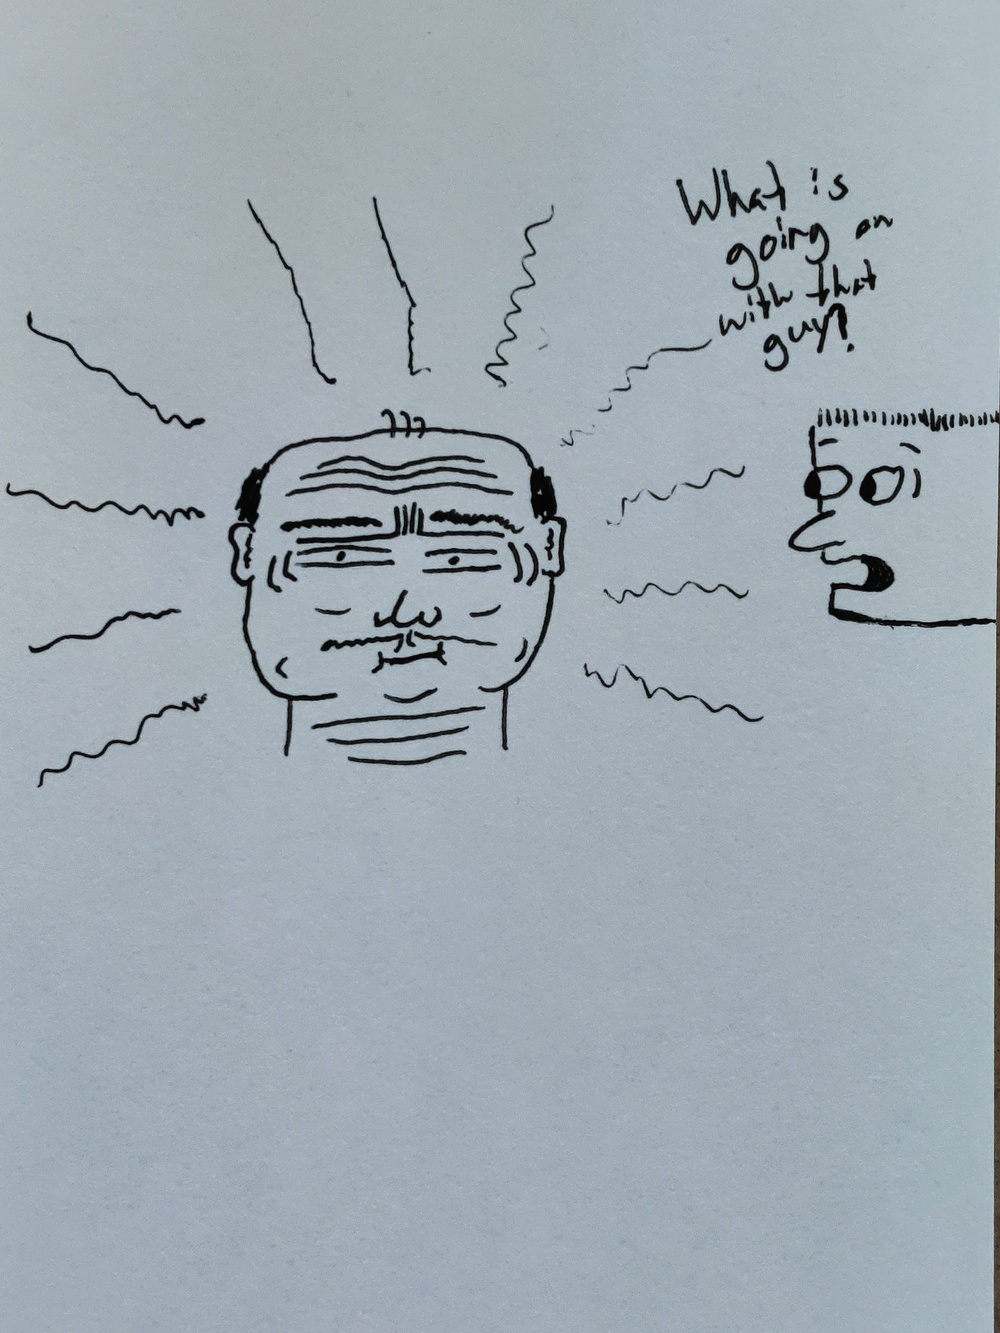 What is
going on
with that
guy?